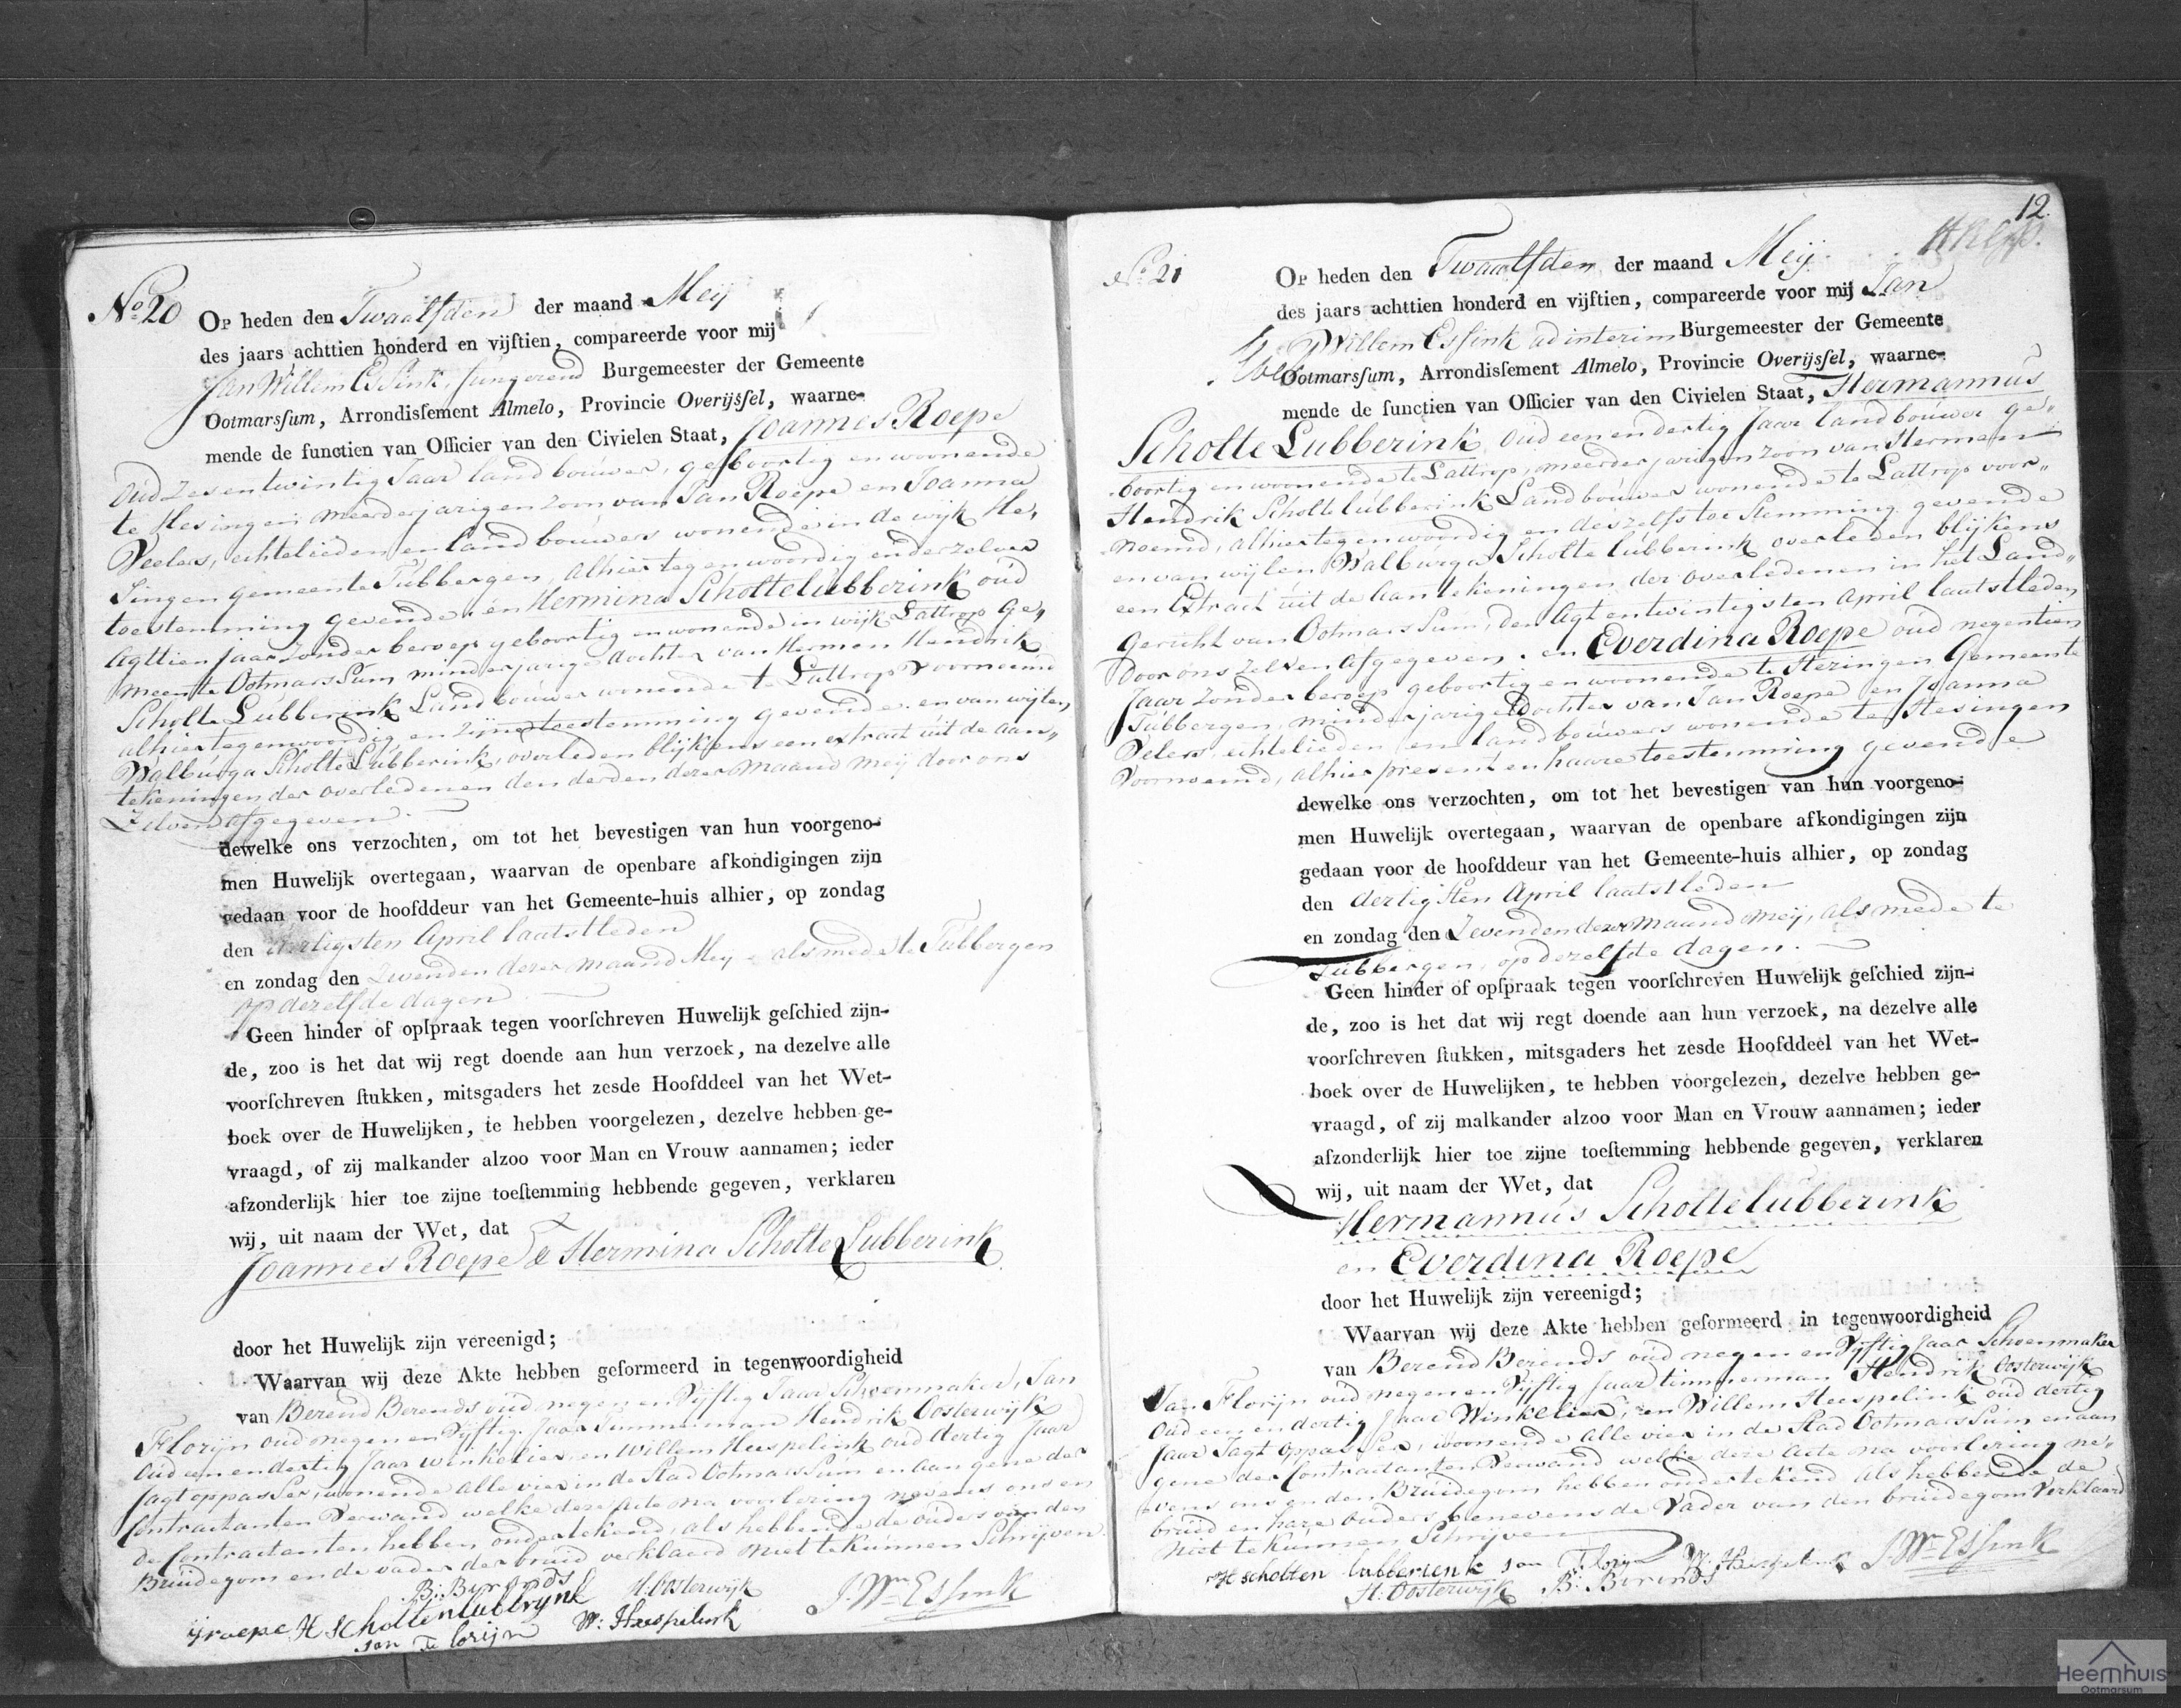 No 20 Op heden den Twaalfden der maand Meij
des jaars achttien honderd en vijftien, compareerde voor mij
Jan Willem Essink, fungerend Burgemeester der Gemeente
Ootmarsſum, Arrondisſement Almelo, Provincie Overijsſel, waarne-
mende de functien van Officier van den Civielen Staat, Joannes Roepe
Oud Zesentwintig Jaar landbouwer, geboortig en woonende
te Hesingen meerderjarigen zoon van Jan Roepe en Joanna
Veelers, echtelieden en landbouwers wonende in de wijk He„
singen gemeente Tubbergen, alhier tegenwoordig en derzelver
toestemming gevende. en Hermina Scholtelubberink oud
Agttien jaar zonder beroep geboortig en wonende in wijk Lattrop Ge„
meente Ootmarssum minderjarige dochter van Hermen Hendrik
Scholte Lubberink Landbouwer wonende te Lattrop voornoemd
alhier tegenwoordig en zijne toestemming gevende. en van wijlen
Walburga Scholte Lubberink, overleden blijkens een extract uit de aan„
tekeningen der overledenen den derden dezer maand meij door ons
Zelven afgegeven.
dewelke ons verzochten, om tot het bevestigen van hun voorgeno-
men Huwelijk overtegaan, waarvan de openbare afkondigingen zijn
gedaan voor de hoofddeur van het Gemeente-huis alhier, op zondag
den dertigsten April laatstleden
en zondag den Zevenden dezer maand Mey - als mede te Tubbergen
op dezelfde dagen
Geen hinder of opſpraak tegen voorſchreven Huwelijk geſchied zijn-
de, zoo is het dat wij regt doende aan hun verzoek, na dezelve alle
voorſchreven ſtukken, mitsgaders het zesde Hoofddeel van het Wet-
boek over de Huwelijken, te hebben voorgelezen, dezelve hebben ge-
vraagd, of zij malkander alzoo voor Man en Vrouw aannamen; ieder
afzonderlijk hier toe zijne toeſtemming hebbende gegeven, verklaren
wij, uit naam der Wet, dat
Joannes Roepe & Hermina Scholte Lubberink
door het Huwelijk zijn vereenigd;
Waarvan wij deze Akte hebben geformeerd in tegenwoordigheid
van Berend Berends oud negen en Vijftig Jaar Schoenmaker, Jan
Florijn oud negen en Vijftig Jaar Timmerman Hendrik Oosterwijk
Oud een en dertig Jaar winkelier en Willem Heespelink oud dertig Jaar
Jagtoppasser, wonende alle vier in de Stad Ootmarssum en aan gene der
Contractanten Verwand welke deze Acte na voorlezing nevens ons en
de Contractanten hebben ondertekend, als hebbende de ouders van den
Bruidegom en de vader der bruid verklaard niet te kunnen Schrijven.
B: Berends H: Oosterwijk
ijroepe H scholtenlubbrynk W: Heespelink J. Wm Essink
jan Florijn
12.
No 21 Op heden den Twaalfden der maand Meij
des jaars achttien honderd en vijftien, compareerde voor mij Jan
Willem Essink ad interim Burgemeester der Gemeente
Ootmarsſum, Arrondisſement Almelo, Provincie Overijsſel, waarne-
mende de functien van Officier van den Civielen Staat, Hermannus
Scholte Lubberink, Oud een en dertig Jaar landbouwer ge„
boortig en woonende te Lattrop, meerderjarigen zoon van Hermen
Hendrik Scholte lubberink Landbouwer wonende te Lattrop voor„
noemd, alhier tegenwoordig en deszelfs toestemming gevende
en van wijlen Walburga Scholte lubberink overleden blijkens
een Extract uit de aantekeningen der overledenen in het Land„
Gericht van Ootmarssum, den Agt en twintigsten April laatstleden
door ons zelven afgegeven. en Everdina Roepe oud negentien
Jaar zonder beroep geboortig en woonende te Hezingen Gemeente
Tubbergen, minderjarige dochter van Jan Roepe en Joanna
Velers, echtelieden en landbouwers wonende te Hesingen
Voornoemd, alhier present en haare toestemming gevende
dewelke ons verzochten, om tot het bevestigen van hun voorgeno-
men Huwelijk overtegaan, waarvan de openbare afkondigingen zijn
gedaan voor de hoofddeur van het Gemeente-huis alhier, op zondag
den dertigsten April laatstleden
en zondag den Zevenden dezer maand meij, als mede te
Tubbergen, op dezelfde dagen.
Geen hinder of opſpraak tegen voorſchreven Huwelijk geſchied zijn-
de, zoo is het dat wij regt doende aan hun verzoek, na dezelve alle
voorſchreven ſtukken, mitsgaders het zesde Hoofddeel van het Wet-
boek over de Huwelijken, te hebben voorgelezen, dezelve hebben ge-
vraagd, of zij malkander alzoo voor Man en Vrouw aannamen; ieder
afzonderlijk hier toe zijne toeſtemming hebbende gegeven, verklaren
wij, uit naam der Wet, dat
Hermannus Scholtelubberink
en Everdina Roepe
door het Huwelijk zijn vereenigd;
Waarvan wij deze Akte hebben geformeerd in tegenwoordigheid
van Berend Berends oud negen en Vijftig Jaar Schoenmaker
Jan Florijn oud negen en Vijftig Jaar timmerman Hendrik Oosterwijk
Oud een en dertig Jaar Winkelier, en Willem Heespelink oud dertig
Jaar Jagtoppasser, woonende alle vier in de Stad Ootmarssum en aan
gene der Contractanten Verwand welke deze Acte na voorlezing ne„
vens ons en den Bruidegom hebben ondertekend als hebbende de
bruid en hare ouders benevens de Vader van den bruidegom Verklaard
niet te kunnen Schrijven
H scholten lubberienk jan Florijn W: Heespelink J. Wm Essink
H: Oosterwijk B: Berends
Heemhuis
Ootmarsum